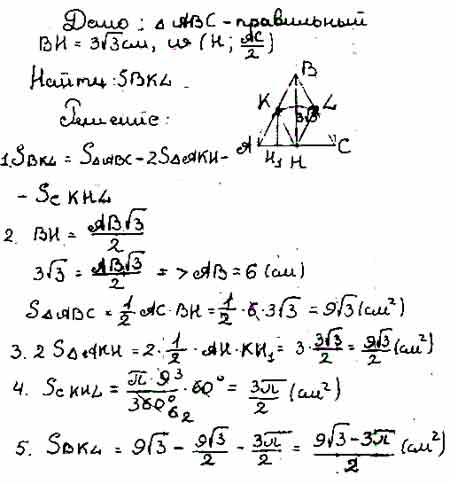 Дано: △ABC - правильный
BH = 3√3 см, ω (H; AC/2)
Найти: SBKL
Решение:
B
K
L
3√3
A
H₁
H
C
1. SBKL = S△ABC - 2S△AKH -
- Sc KHL
2. BH = AB√3/2
3√3 = AB√3/2 => AB = 6 (см)
S△ABC = 1/2 AC · BH = 1/2 · 6 · 3√3 = 9√3 (см²)
3. 2S△AKH = 2 · 1/2 · AH · KH₁ = 3 · 3√3/2 = 9√3/2 (см²)
4. Sc KHL = π · 9 3/360° 6 2 · 60° = 3π/2 (см²)
5. SBKL = 9√3 - 9√3/2 - 3π/2 = 9√3 - 3π/2 (см²)